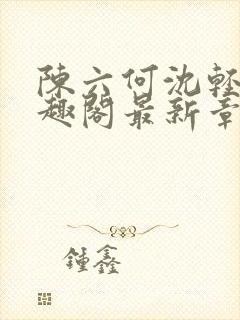 陳六何沈輕
趣閣最新章
鍾鑫